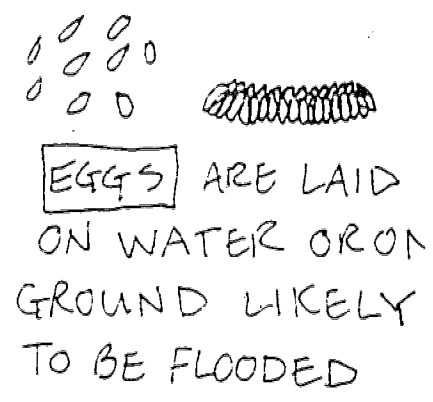 EGGS ARE LAID
ON WATER OR ON
GROUND LIKELY
TO BE FLOODED